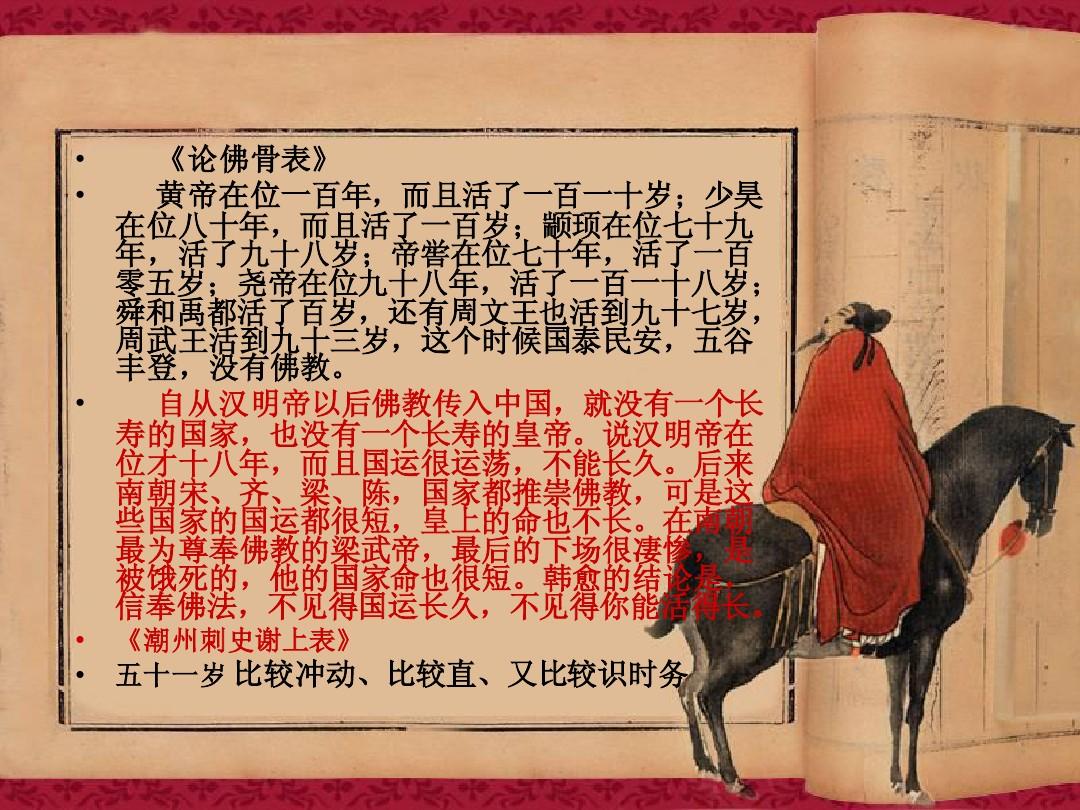 • 《论佛骨表》
• 黄帝在位一百年，而且活了一百一十岁；少昊
在位八十年，而且活了一百岁；颛顼在位七十九
年，活了九十八岁；帝喾在位七十年，活了一百
零五岁；尧帝在位九十八年，活了一百一十八岁；
舜和禹都活了百岁，还有周文王也活到九十七岁，
周武王活到九十三岁，这个时候国泰民安，五谷
丰登，没有佛教。
• 自从汉明帝以后佛教传入中国，就没有一个长
寿的国家，也没有一个长寿的皇帝。说汉明帝在
位才十八年，而且国运很运荡，不能长久。后来
南朝宋、齐、梁、陈，国家都推崇佛教，可是这
些国家的国运都很短，皇上的命也不长。在南朝
最为尊奉佛教的梁武帝，最后的下场很凄惨，是
被饿死的，他的国家命也很短。韩愈的结论是：
信奉佛法，不见得国运长久，不见得你能活得长。
• 《潮州刺史谢上表》
• 五十一岁 比较冲动、比较直、又比较识时务